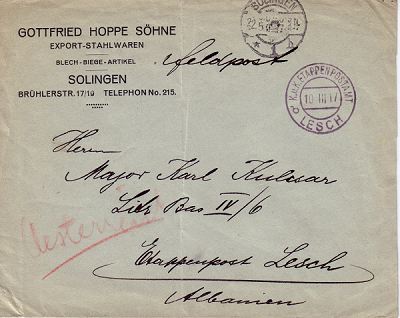 GOTTFRIED HOPPE SÖHNE
EXPORT-STAHLWAREN
BLECH-BIEGE-ARTIKEL
SOLINGEN
BRÜHLERSTR. 17/19 TELEPHON No. 215.
SOLINGEN
Feldpost
K.u.K. ETAPPENPOSTAMT
10 III 17
LESCH
Herrn
Major Karl Kulcsar
Bas IV/6
Etappenpost Lesch
Albanien